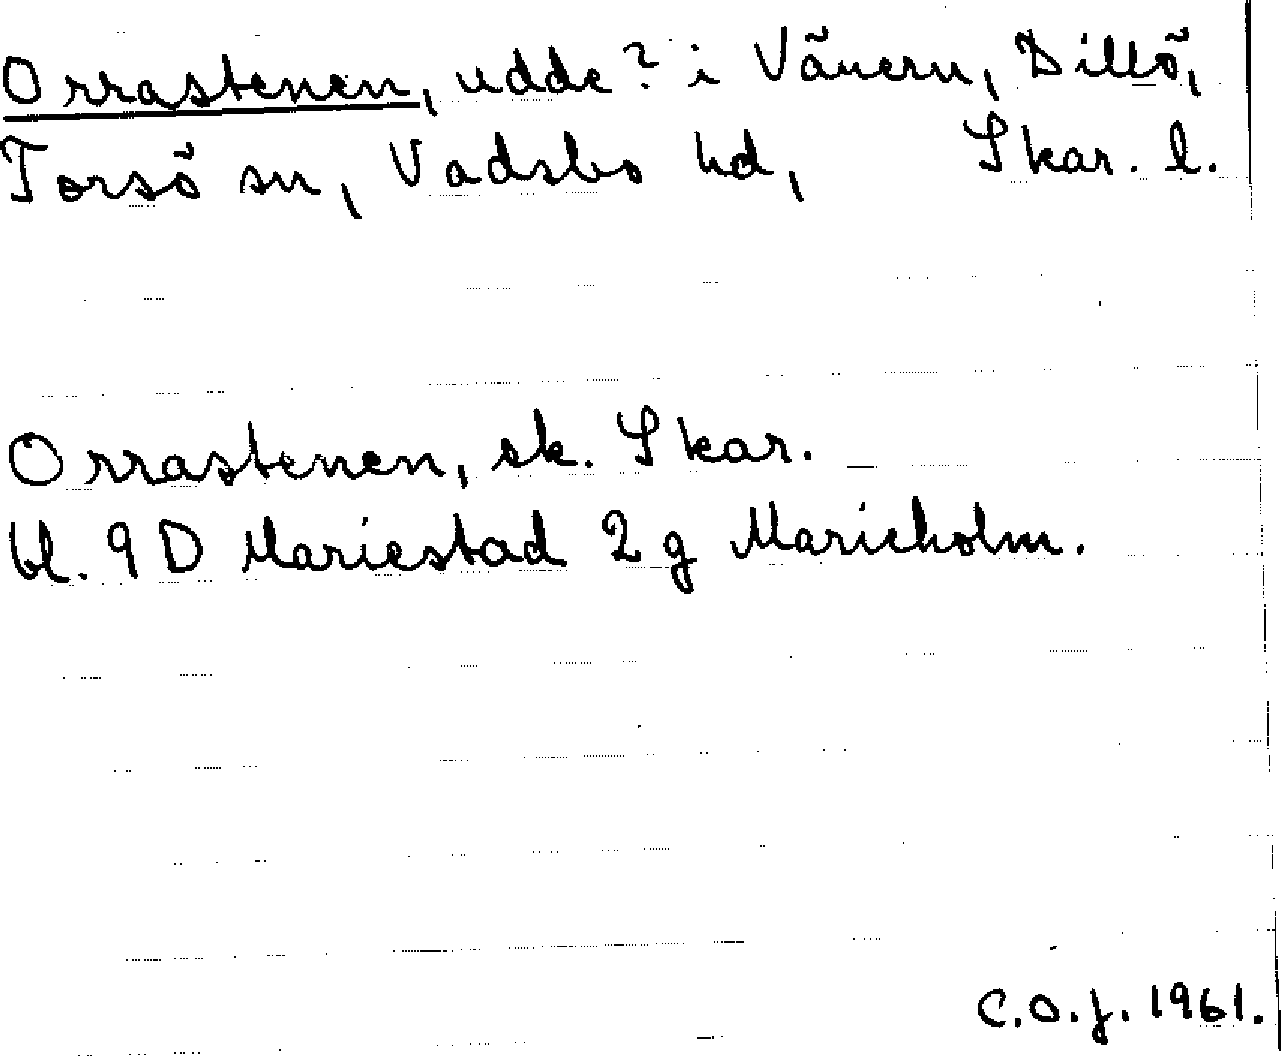 Orrastenen, udde? i Vänern, Dillö,
Torsö sn, Vadsbo hd, Skar. l.
Orrastenen, sk. Skar.
bl. 9 D Mariestad 2 g Marieholm.
C.O.J. 1961.